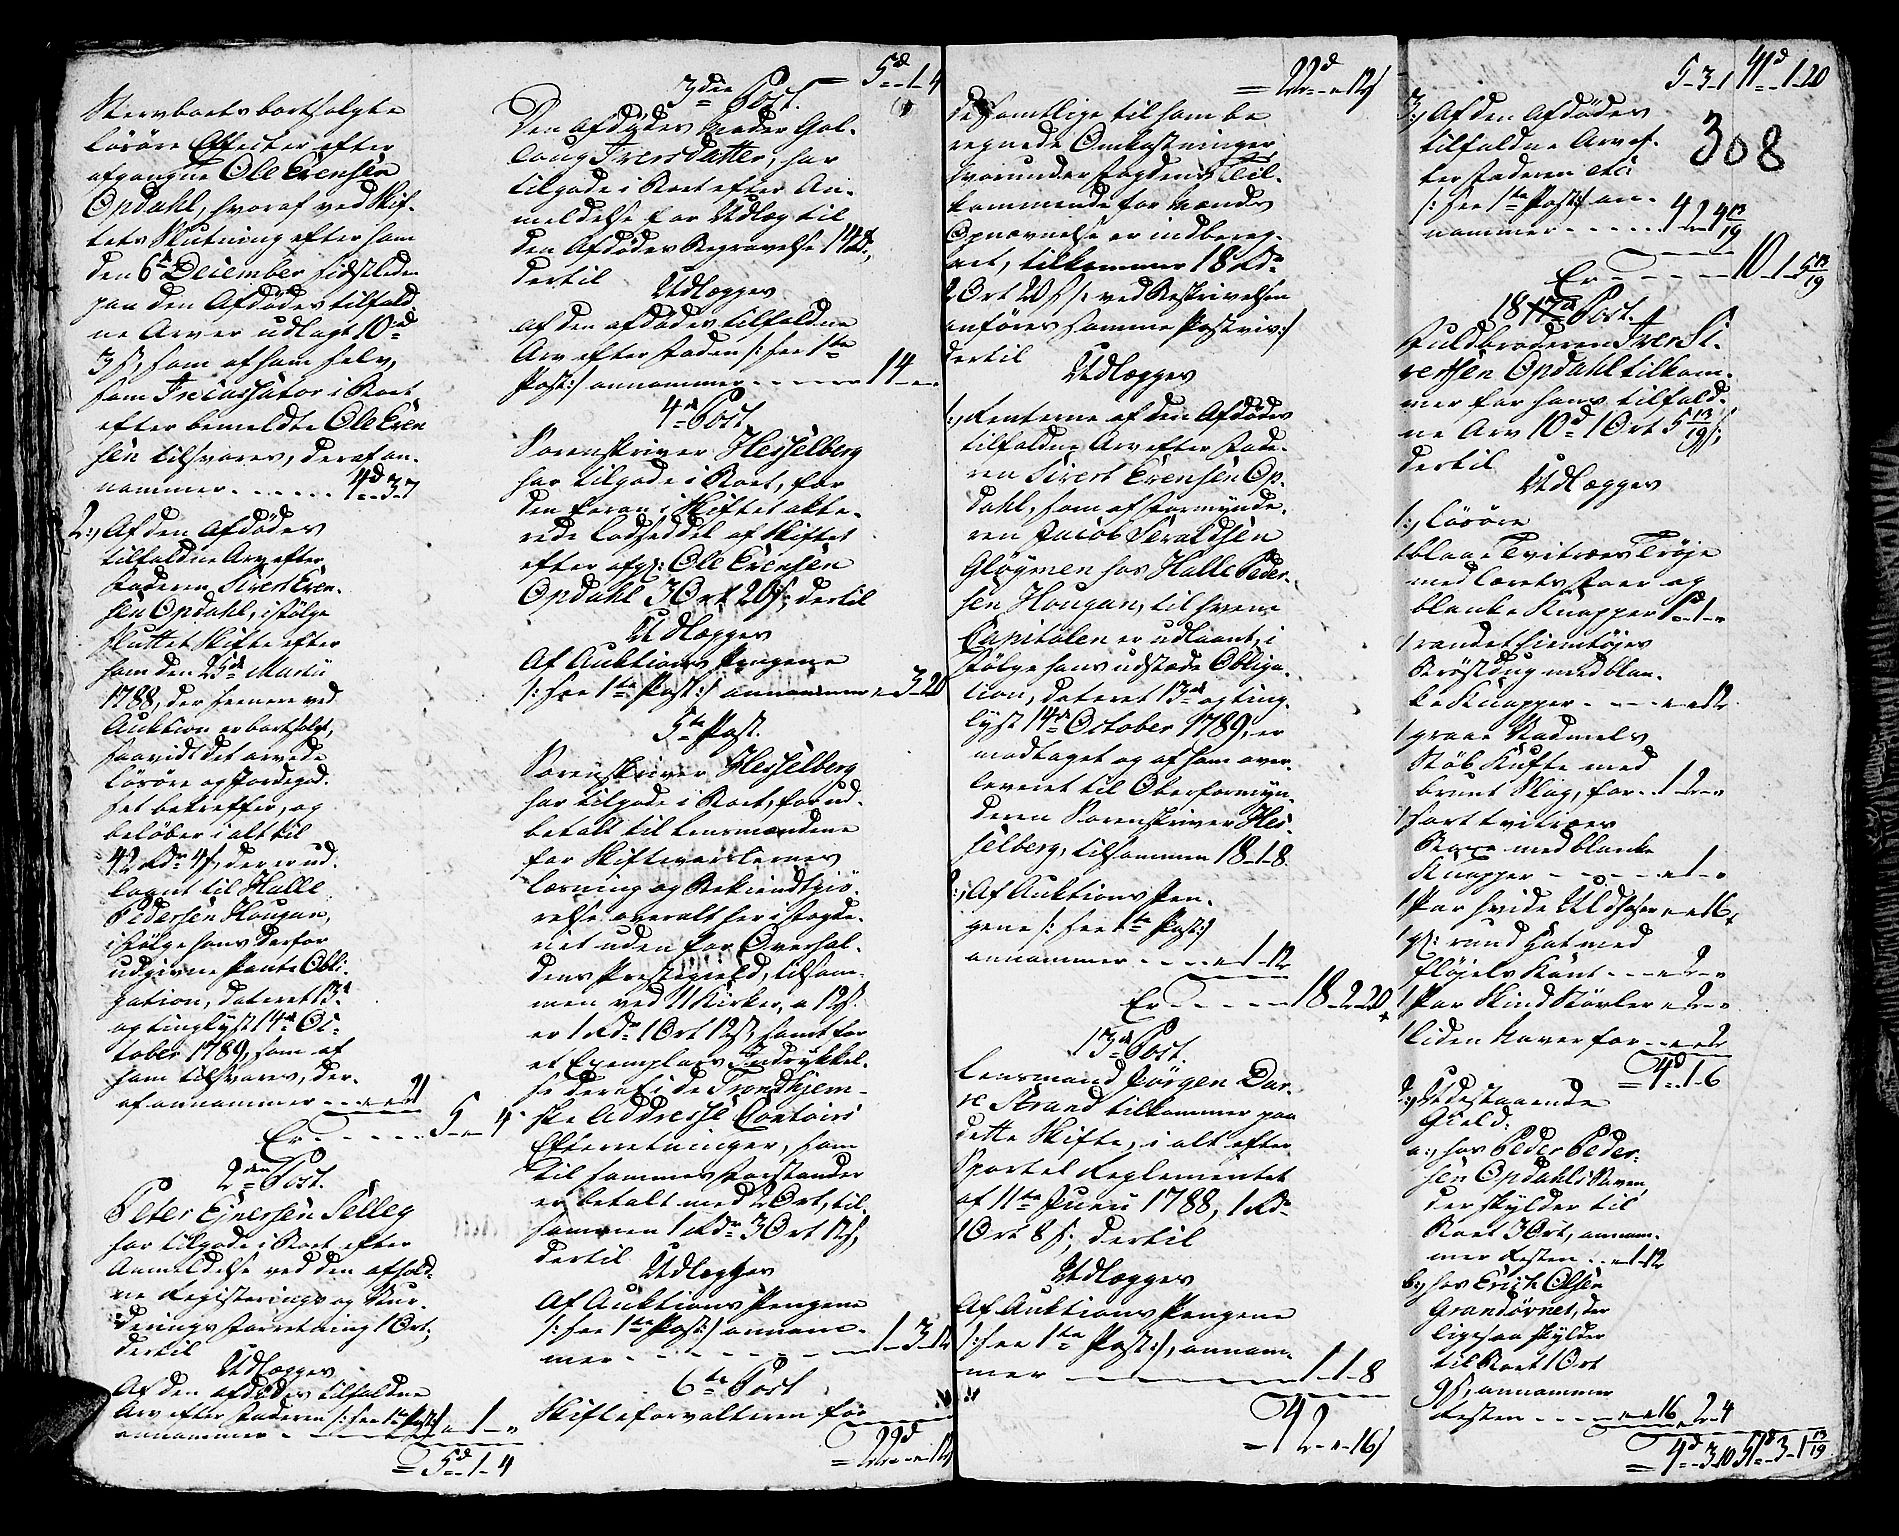 Stervboets bortsolgte
Lösöre Effecter efter
afgangne Ole Evensen
Opdahl, hvoraf ved Skif-
tets Slutning efter ham
den 6te December sidstleden
paa den Afdödes tilfald-
ne Arv er udlagt 10 rd
3 s, som af ham selv,
som Incassator i Boet
efter bemeldte Ole Even-
sen tilsvares, deraf an-
nammer . . . . . . 4 d - 3 - 7
2:, Af den Afdödes
tilfaldne Arv efter
Faderen Sivert Even-
sen Opdahl, ifölge
sluttet Skifte efter
ham den 25de Martii
1788, der senere ved
Auktion er bortsolgt,
saavidt det arvede
Lösöre og Jordegod-
set betreffer, og
belöber i alt til
42 rdr 4 s, der er ud-
laant til Halle
Pedersen Hougan,
ifölge hans derfor
udgivne Pante Obli-
gation, dateret 13de
og tinglyst 14de Oc-
tober 1789, som af
ham tilsvares, der-
af annammer - - - 21
Er - - - - - 5 - " - 4
2den Post.
Peter Ejnersen Selleg
har tilgode i Boet efter
Anmeldelse ved den afhold-
ne Registerings og Vur-
derings Forretning 1 Ort,
dertil
Udlægges
Af den afdödes tilfaldne
Arv efter Faderen /: see 1te Post :/
annammer - - - - " - 1 - "
= 5 d - 1 - 4
= 5 d - 1 - 4
3die Post.
Den Afdödes Moder Gol-
laug Iversdatter, har
tilgode i Boet efter An-
meldelse for Udlæg til
den Afdödes Begravelse 14 rd,
dertil
Udlægges
Af den afdödes tilfaldne
Arv efter Faderen /: see 1te
Post :/ annammer - - - - - 14 - " -
4de Post.
Sorenskriver Hesselberg
har tilgode i Boet, for
den foran i Skiftet akte-
rede Lodseddel af Skiftet
efter afg: Ole Evensen
Opdahl 3 Ort 20 s, dertil
Udlægges
Af Auktions Pengene
/: see 1te Post :/ annammer " - 3 - 20
5te Post.
Sorenskriver Hesselberg
har tilgode i Boet, for ud-
betalt til Lensmændene
for Skiftevarslernes
Læsning og Bekiendtgiö-
relse overalt her i Fogde-
riet uden for Overhal-
dens Prestegield, tilsam-
men ved 11 Kirker, a 12 s.
er 1 rdr 1 Ort 12 s, samt for
et Exemplars Indrykkel-
se deraf i de Trondhjem-
ske Addresse Contoirs
Efterretninger, som
til sammes Forstander
er betalt med 2 Ort, til-
sammen 1 rdr 3 Ort 12 s,
dertil
Udlægges
Af Auktions Pengene
/: see 1te Post :/ annam-
mer - - - - - - - - 1 - 3 - 12
6te Post
Skifteforvalteren for
= 22 d - " - 12 s
= 22 d - " - 12 s
de samtlige til ham be-
regnede Omkostninger
hvorunder Fogdens Til-
kommende for Mænds
Opnævnelse er indbereg-
net, tilkommer 18 rdr
2 Ort 20 s /: ved Beskrivelsen
anföres samme Postviis :/
dertil
Udlægges
1:, Renterne af den Afdödes
tilfaldne Arv efter Fade-
ren Sivert Evensen Op-
dahl, som af Formynde-
ren Jacob Siraldsen
Glöymen hos Halle Peder-
sen Hougan, til hvem
Capitalen er udlaant, i
Fölge hans udstæde Obliga-
tion, dateret 13de og ting-
lyst 14de October 1789, er
modtaget og af ham over-
leveret til Oberformyn-
deren Sorenskriver Hes-
selberg, tilsammen 18 - 1 - 8
2:, Af Auktions Pen-
gene /: see 1te Post :/
annammer - - - - " - 1 - 12
Er - - - - - 18 - 2 - 20
13de Post.
Lensmand Jörgen Dar-
re Strand tilkommer paa
dette Skifte, i alt efter
Sportel Reglementet
af 11te Junii 1788, 1 rdr
1 Ort 8 s; dertil
Udlægges
Af Auktions Pengene
/: see 1te Post :/, annam-
mer - - - - - - 1 - 1 - 8
= 42 - " - 16 s
5 - 3 - 1 41 d - 1 - 20
308
3:, Af den Afdödes
tilfaldne Arv ef-
ter Faderen etc:
/: see 1te Post :/ an-
nammer - - - - - 4 - 2 - 4 13/19
Er - - - - - - 10 - 1 - 5 13/19
18 17de Post.
Fuldbroderen Iver Si-
vertsen Opdahl tilkom-
mer for hans tilfald-
ne Arv 10 d 1 Ort 5 13/19 s,
dertil
Udlægges
1:, Lösöre
1 blaae Tvitræs Tröje
med Lærets Foer og
blanke Knapper 1 d - 1 - "
1 randet hiemtöjes
Bröstdug med blan-
ke Knapper - - - - " - " - 12
1 graae Vadmels
Stöb Kufte med
bruut Skög, for - 1 - 2 - "
1 sort tvitræs
Buxe med blanke
Knapper - - - - - " - 1 - "
1 Par hvide Uldhoser " - " - 16
1 gl: rund Hat med
flöjels Kant - - - " - 2 - "
1 Par Skind Stövler " - 2 - "
1 liden Naver for - - " - " - 2
= 4 d - 1 - 6
2:, Udestaaende
Gield.
a:, hos Peder Peder-
sen Opdahl i Naven,
der skylder til
Boet 3 Ort, annam-
mer Resten - - " - 1 - 12
b:, hos Erich Olsen
Grandövnet, der
ligesaa skylder
til Boet 1 Ort
9 s, annammer
Resten - - - - " - " - 16 " - 2 - 4
= 4 d - 3 - 10 51 d - 3 - 1 13/19